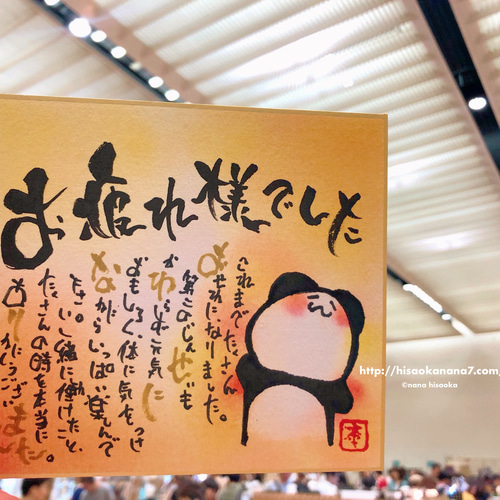 お疲れ様でした
これまでたくさん
お世話になりました。
第二のじんせいも
かわらず元気に
おもしろく、体に気をつけ
ながらいっぱい楽しんで
下さい。一緒に働けたこと、
たくさんの時を本当に
ありがとうございました。
http://hisaokanana7.com/
©nana hisaoka